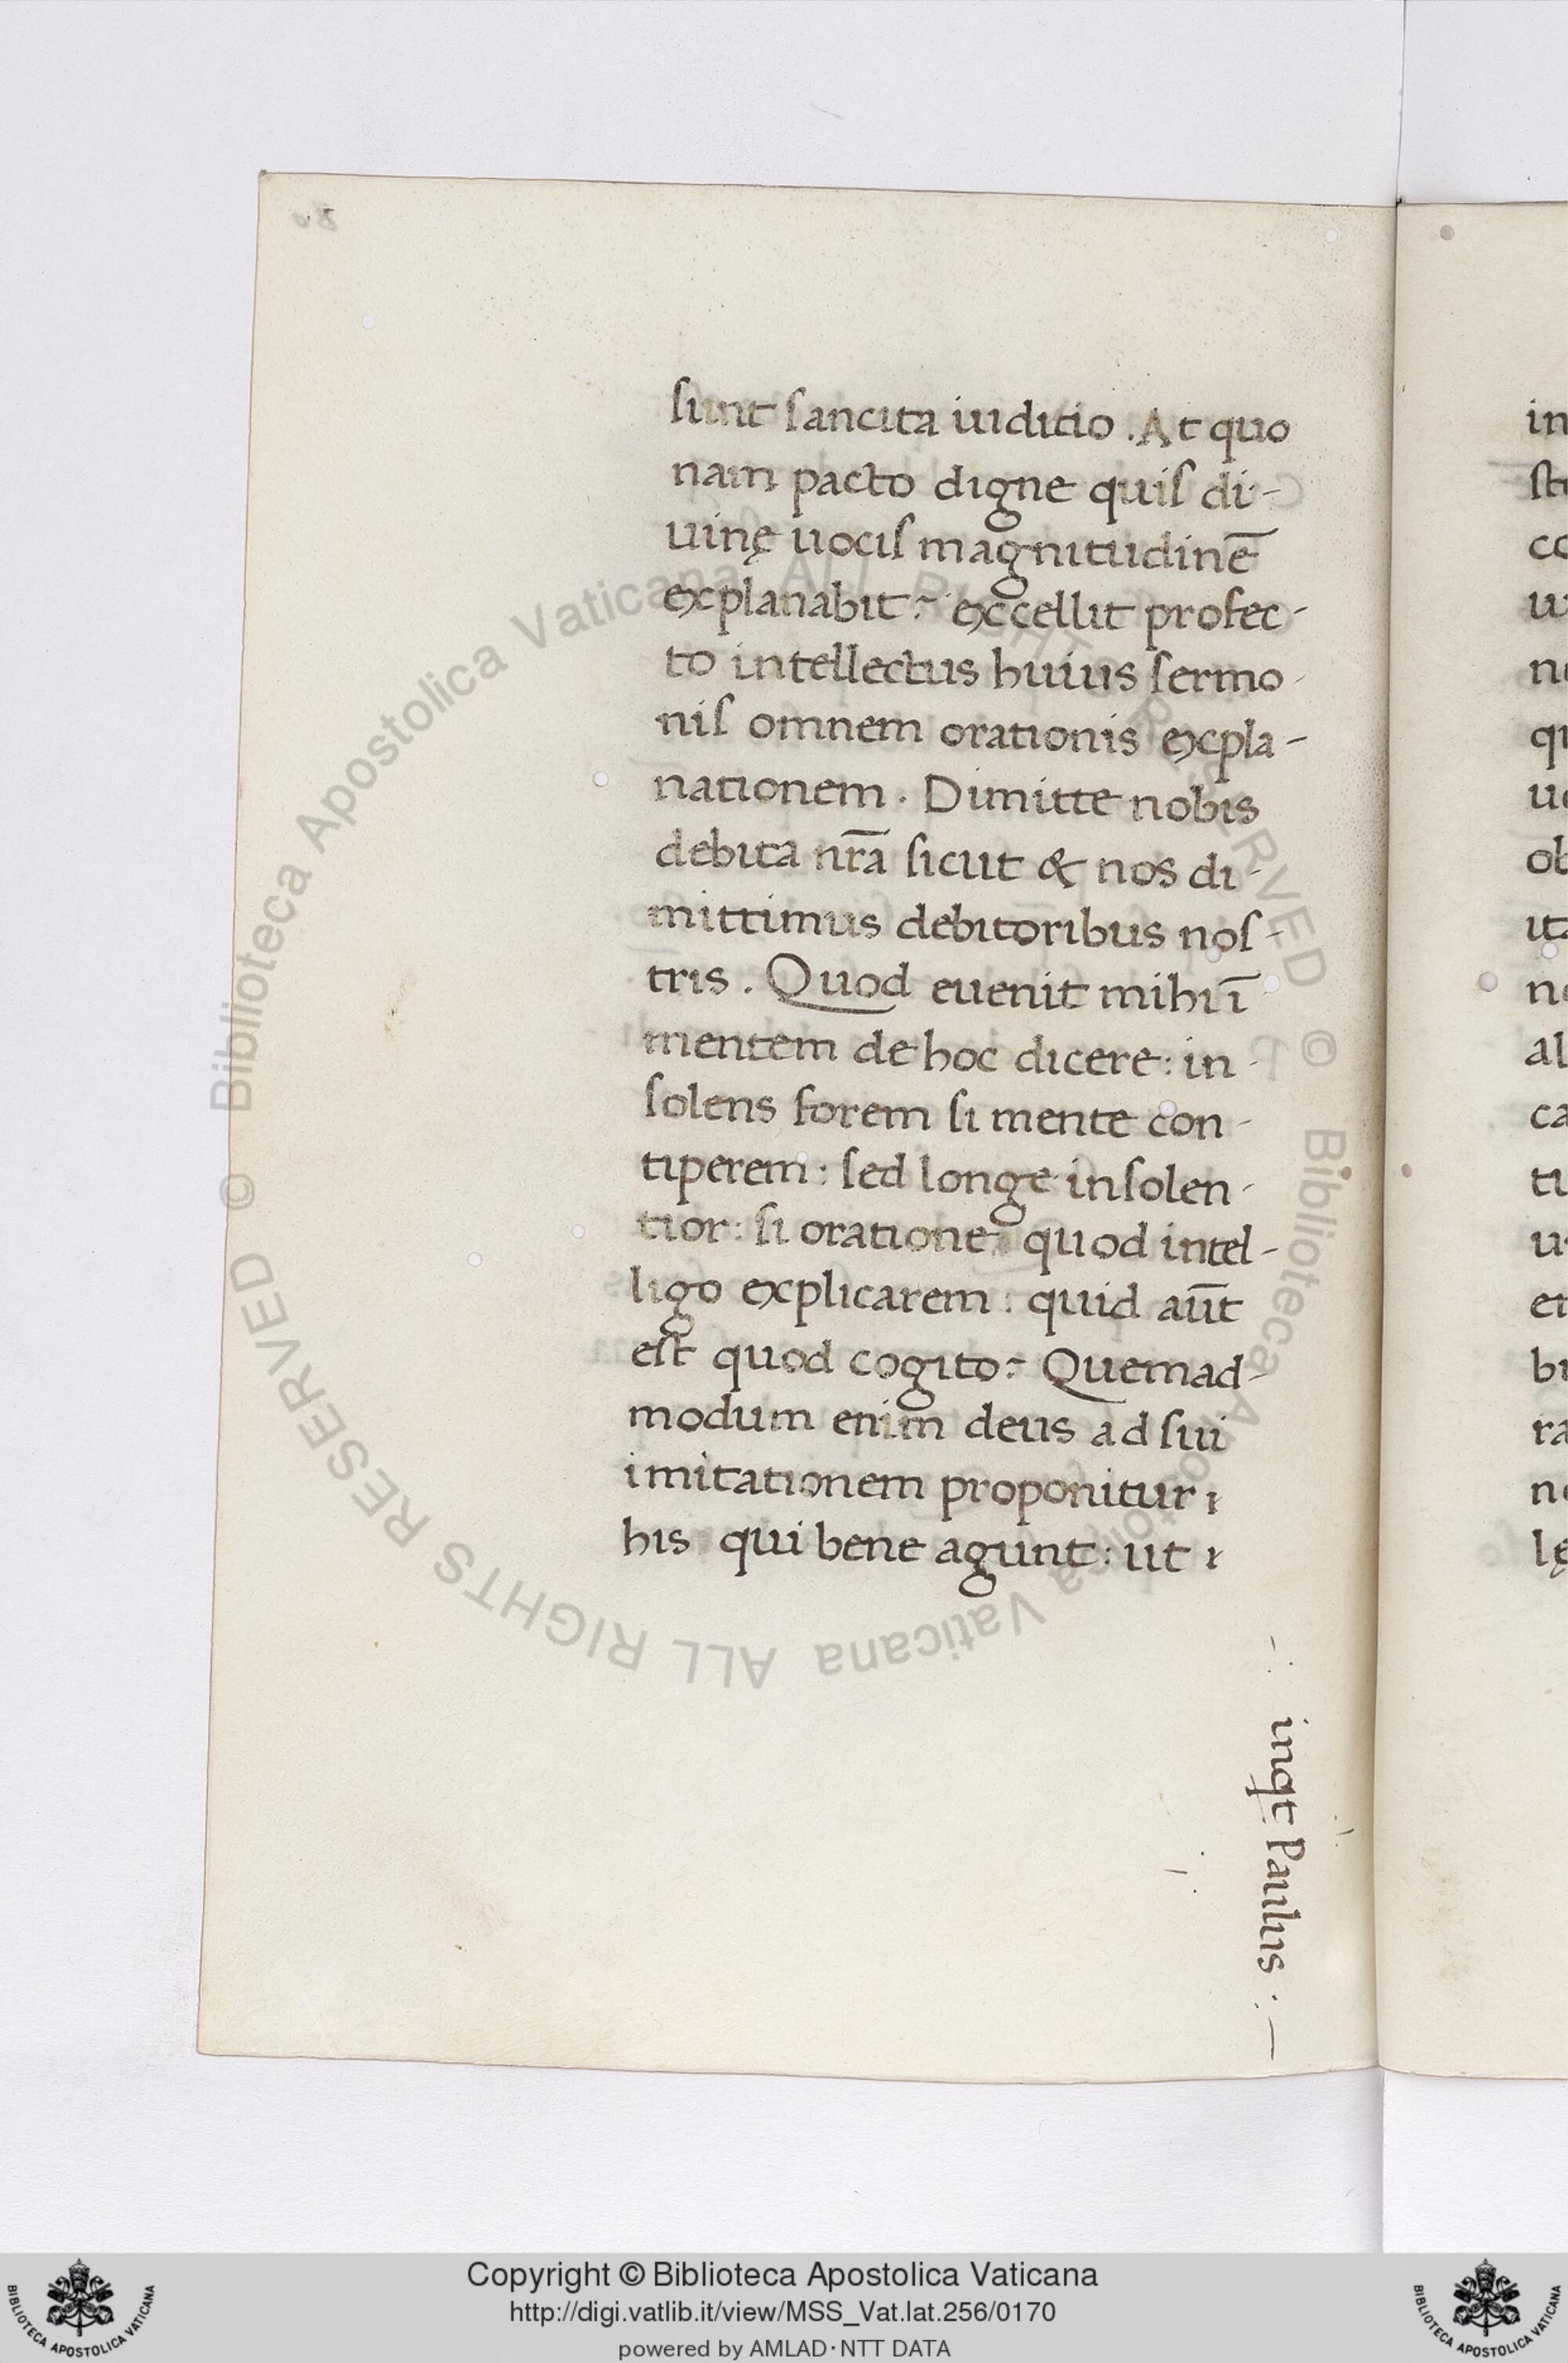 sunt sancita iuditio. At quo
nam pacto digne quis di-
uinę uocis magnitudinē
explanabit? excellit profec-
to intellectus huius sermo-
nis omnem orationis expla-
nationem. Dimitte nobis
debita nr̄a sicut & nos di-
mittimus debitoribus nos-
tris. Quod euenit mihi ī
mentem de hoc dicere: in-
solens forem si mente con-
tiperem: sed longe insolen-
tior: si oratione quod intel-
ligo explicarem: quid aūt
est quod cogito? Quemad-
modum enim deus ad sui
imitationem proponitur
his qui bene agunt: ut
inqt Paulus:—
in
stu
co
ui
ne
qu
ue
ob
ita
ne
al
ca
tu
u
et
bi
ra
ne
lę
© Biblioteca Apostolica Vaticana ALL RIGHTS RESERVED © Biblioteca Apostolica Vaticana ALL RIGHTS RESERVED
Copyright © Biblioteca Apostolica Vaticana
http://digi.vatlib.it/view/MSS_Vat.lat.256/0170
powered by AMLAD·NTT DATA
BIBLIOTECA APOSTOLICA VATICANA
BIBLIOTECA APOSTOLICA VATICANA